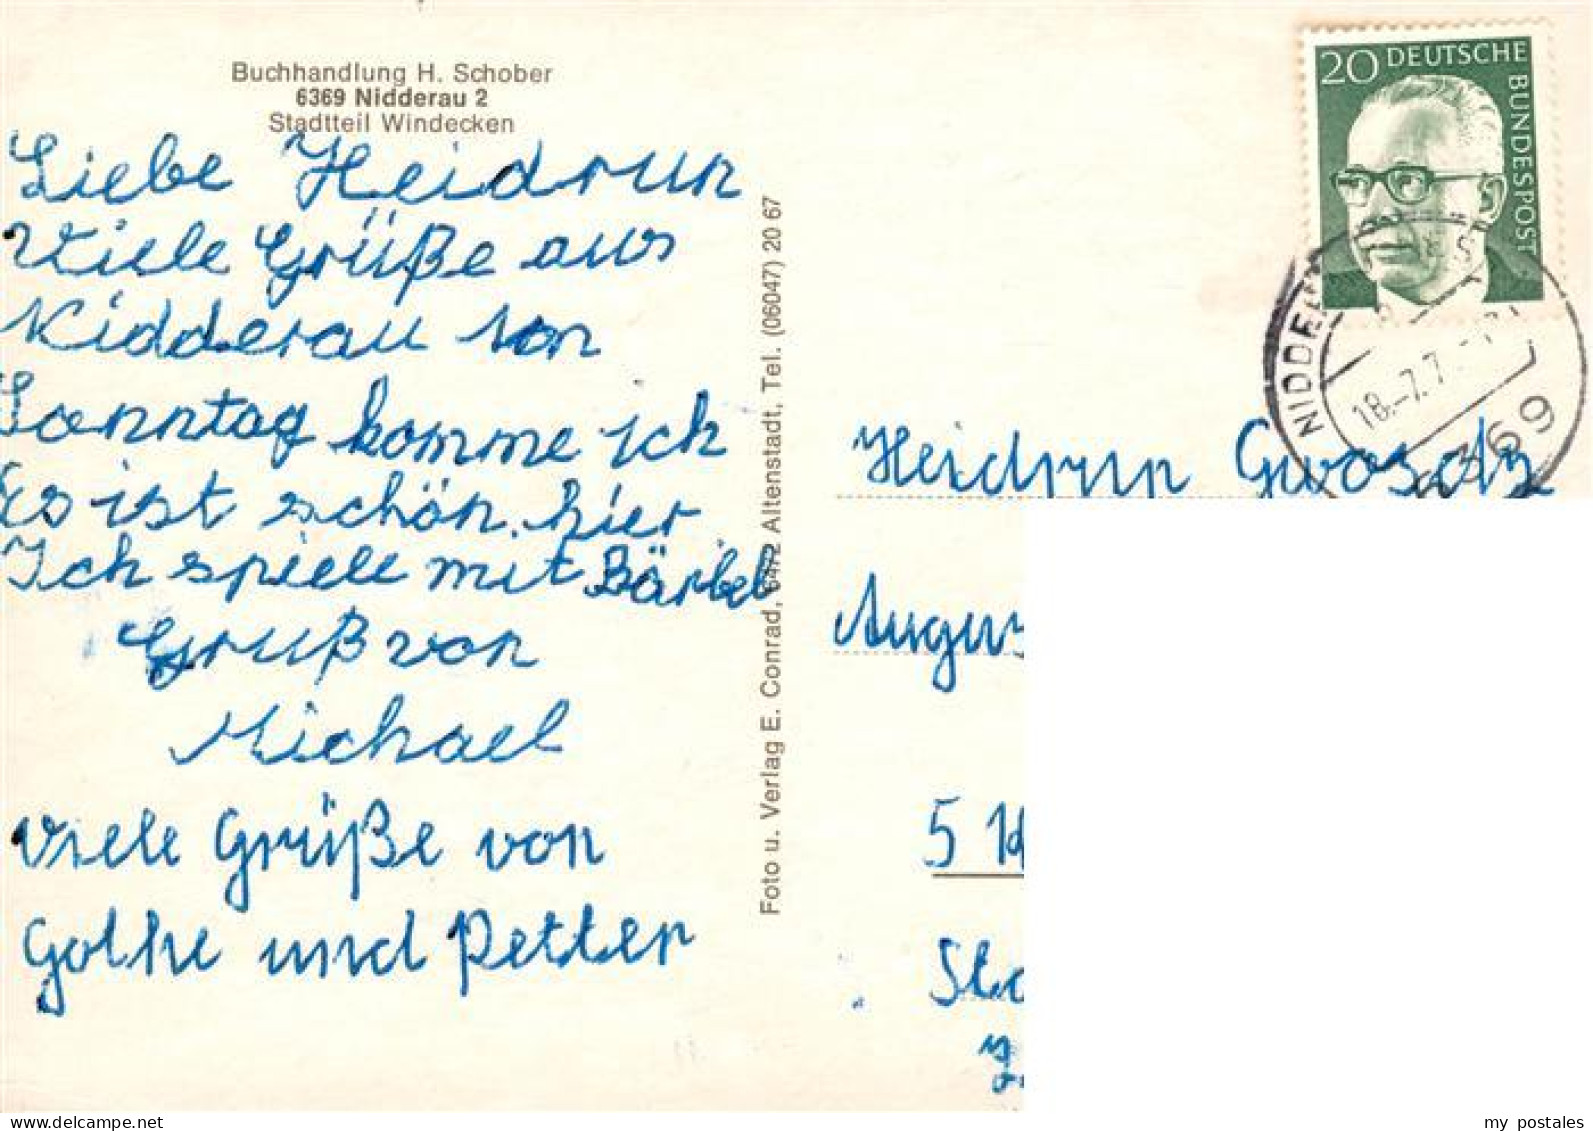 Buchhandlung H. Schober
6369 Nidderau 2
Stadtteil Windecken
Liebe Heidrun
Viele Grüße aus
Nidderau von
Sonntag komme ich
Es ist schön hier
Ich spiele mit Bärbel
Gruß von
Michael
Viele Grüße von
Gothe und Petter
Foto u. Verlag E. Conrad, 6472 Altenstadt, Tel. (06047) 20 67
20 DEUTSCHE
BUNDESPOST
18.-7.7
6369
Heidrun
5
my postales